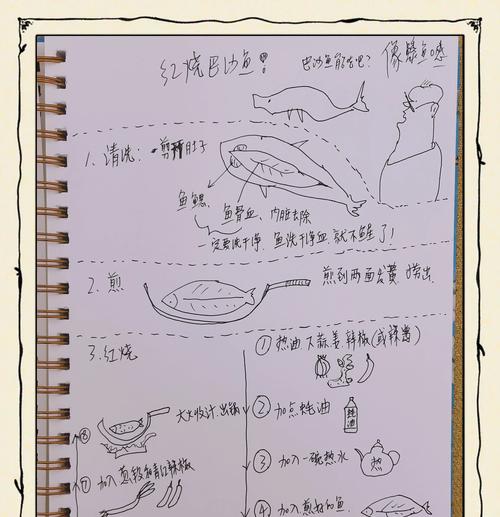 红烧巴沙鱼!
巴沙鱼能吃吧?
像鱼感
1. 清洗: 剪开肚子
鱼鳃
鱼骨血、内脏去除
一定要洗干净, 鱼洗干净血, 就不腥了!
2. 煎
煎到两面发黄 捞出.
3. 红烧
① 热油 下蒜姜辣椒(或辣酱)
② 加点蚝油
蚝油
③ 加入一碗热水
热
④ 加入煎好的鱼.
⑧ 大火收汁.出锅
⑦ 加入葱段和青红辣椒